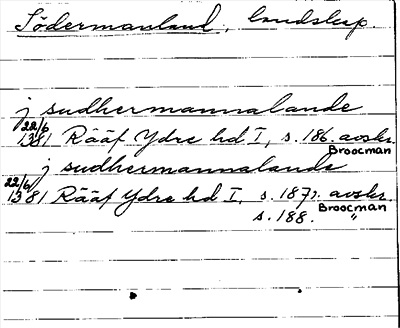 Södermanland, landskap.
j sudhermannalande
22/6 1381 Rääf Ydre hd I, s. 186. avskr. Broocman
j sudhermannalande
22/6 1381 Rääf Ydre hd I, s. 187. avskr. Broocman
s. 188. "